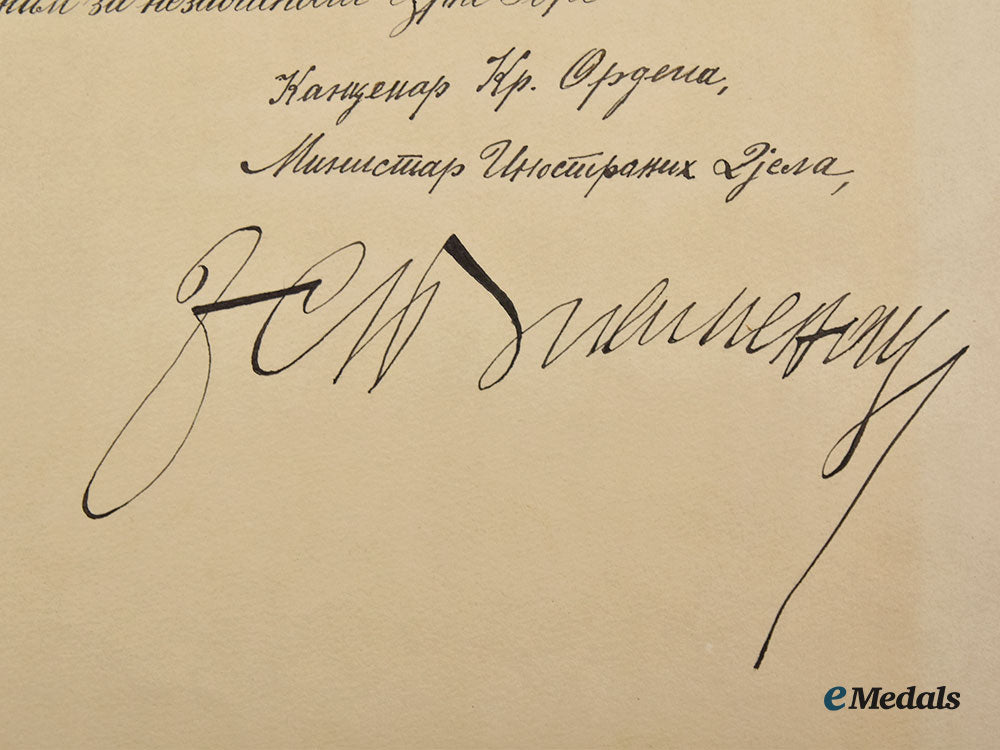 за независимост Црне Горе
Канцелар Кр. Ордена,
Министар Иностраних Дјела,
eMedals